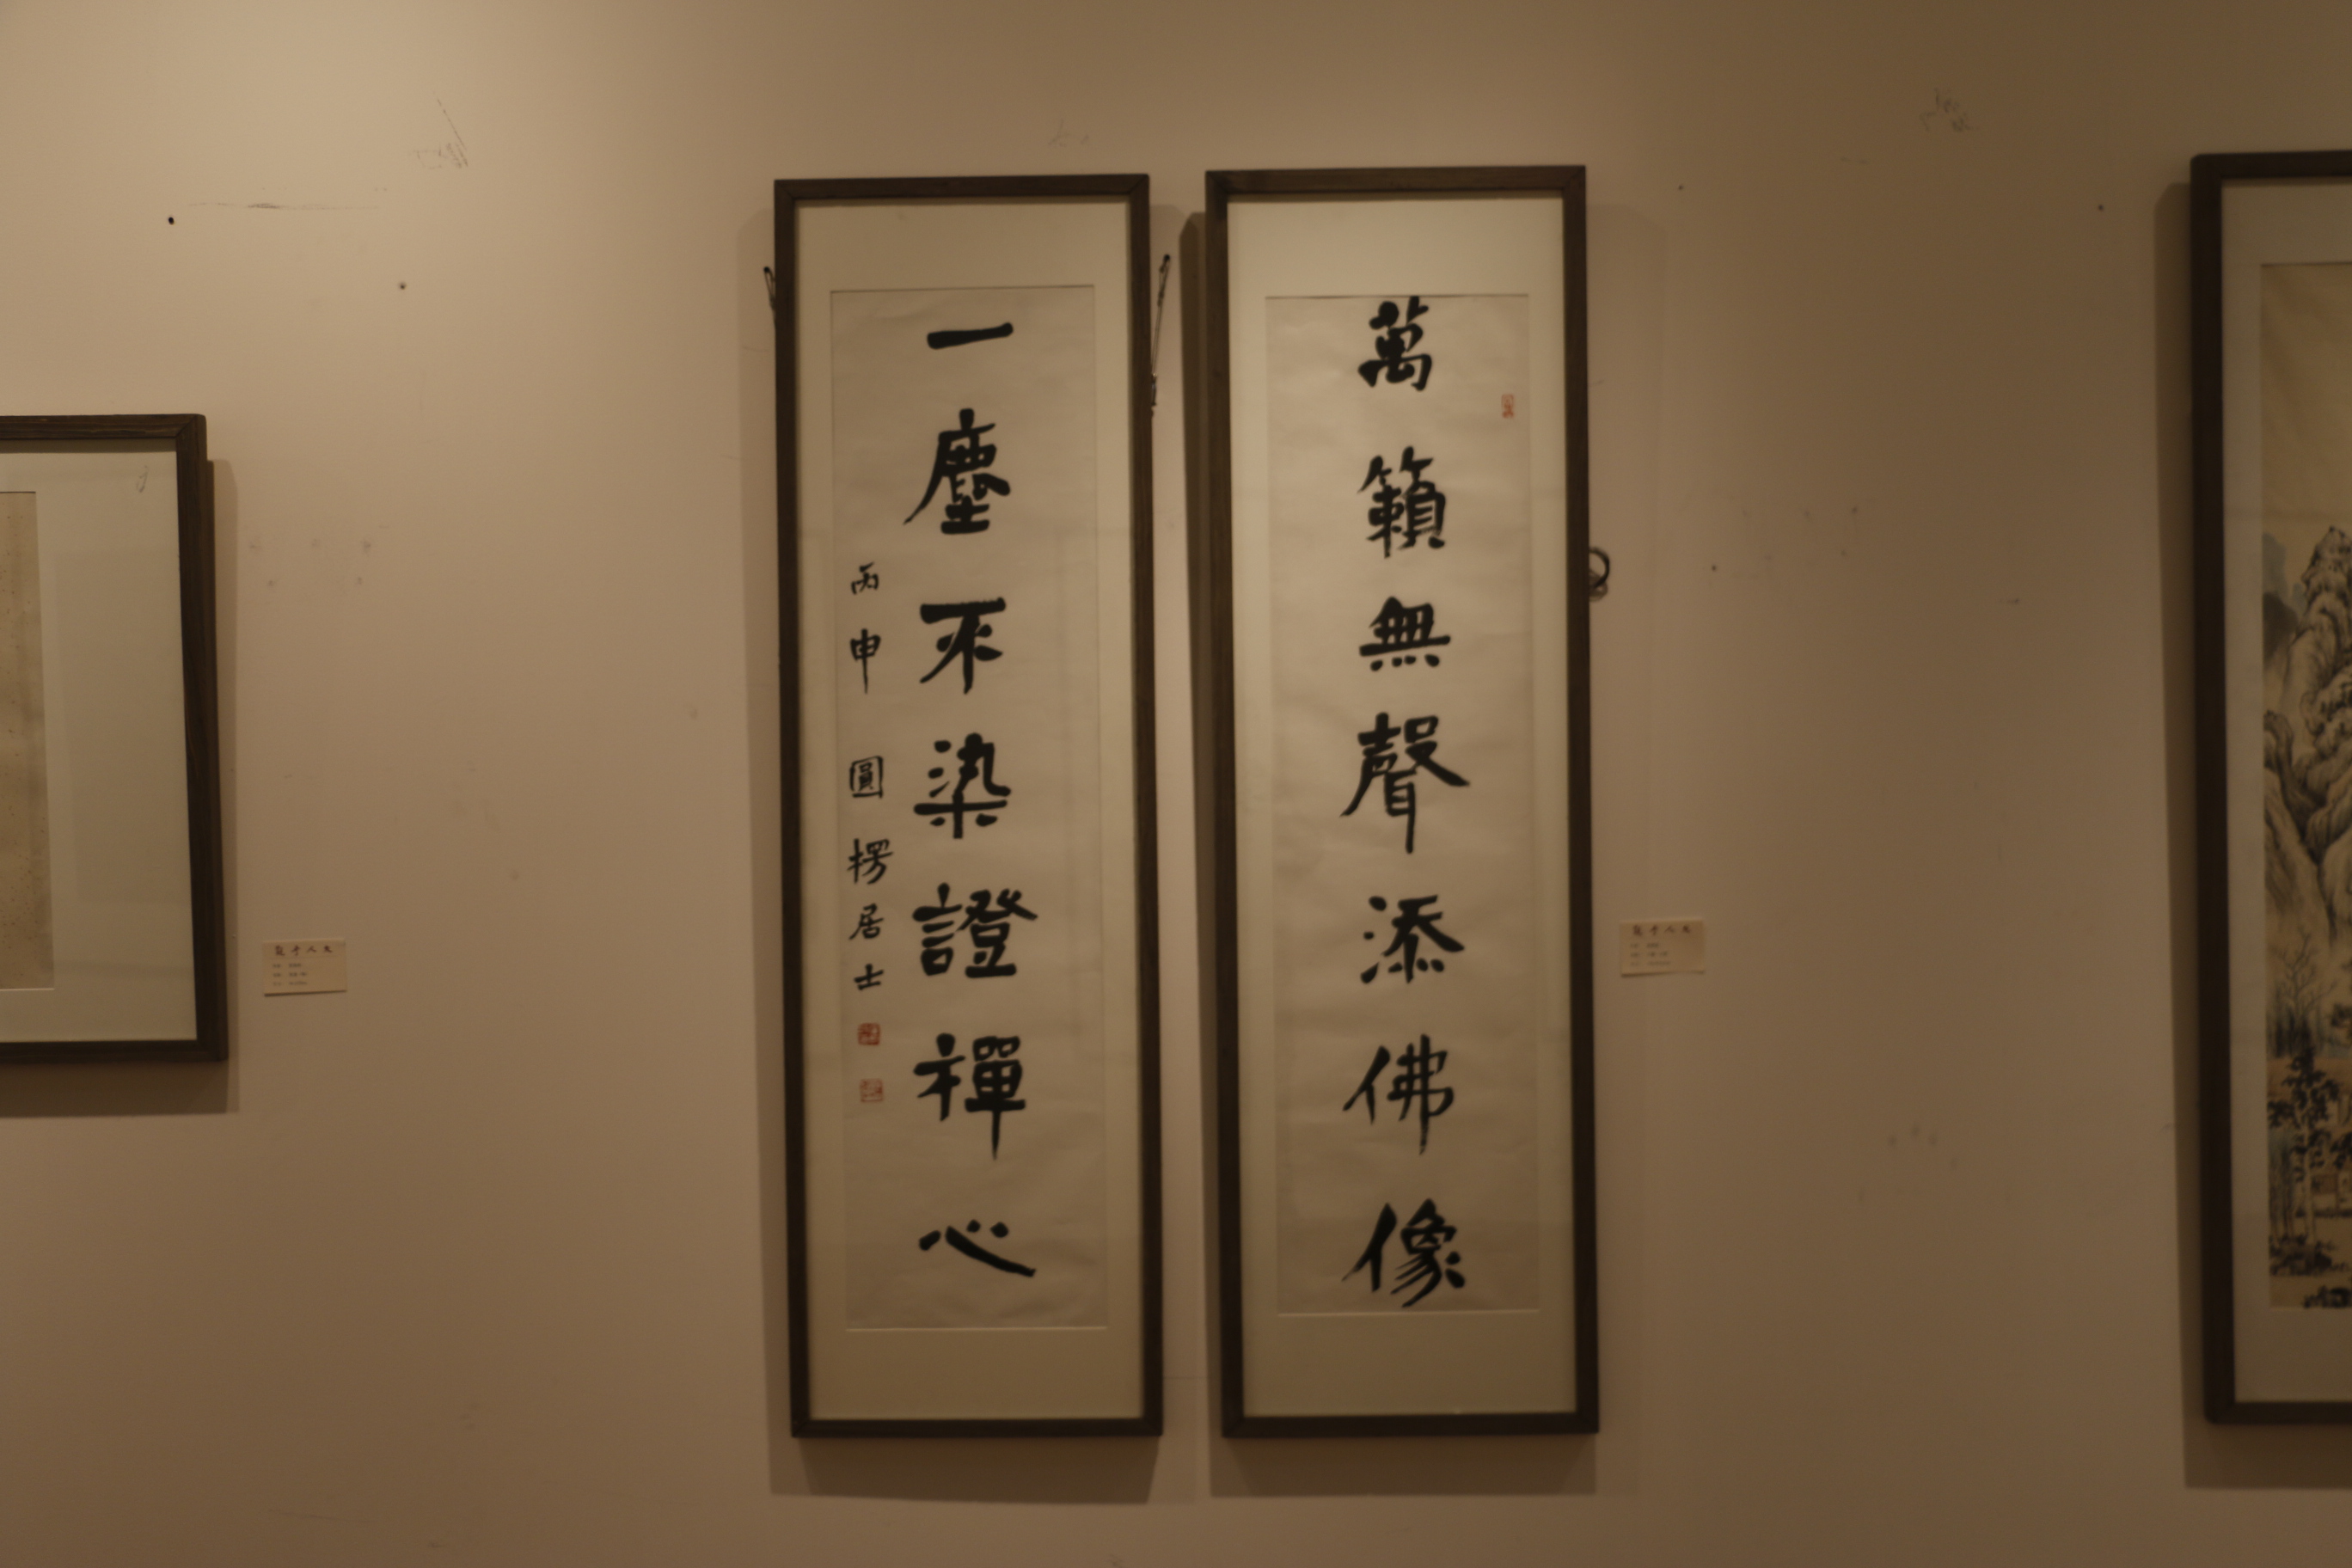 萬籟無聲添佛像
一塵不染證禪心
丙申 圓楞居士